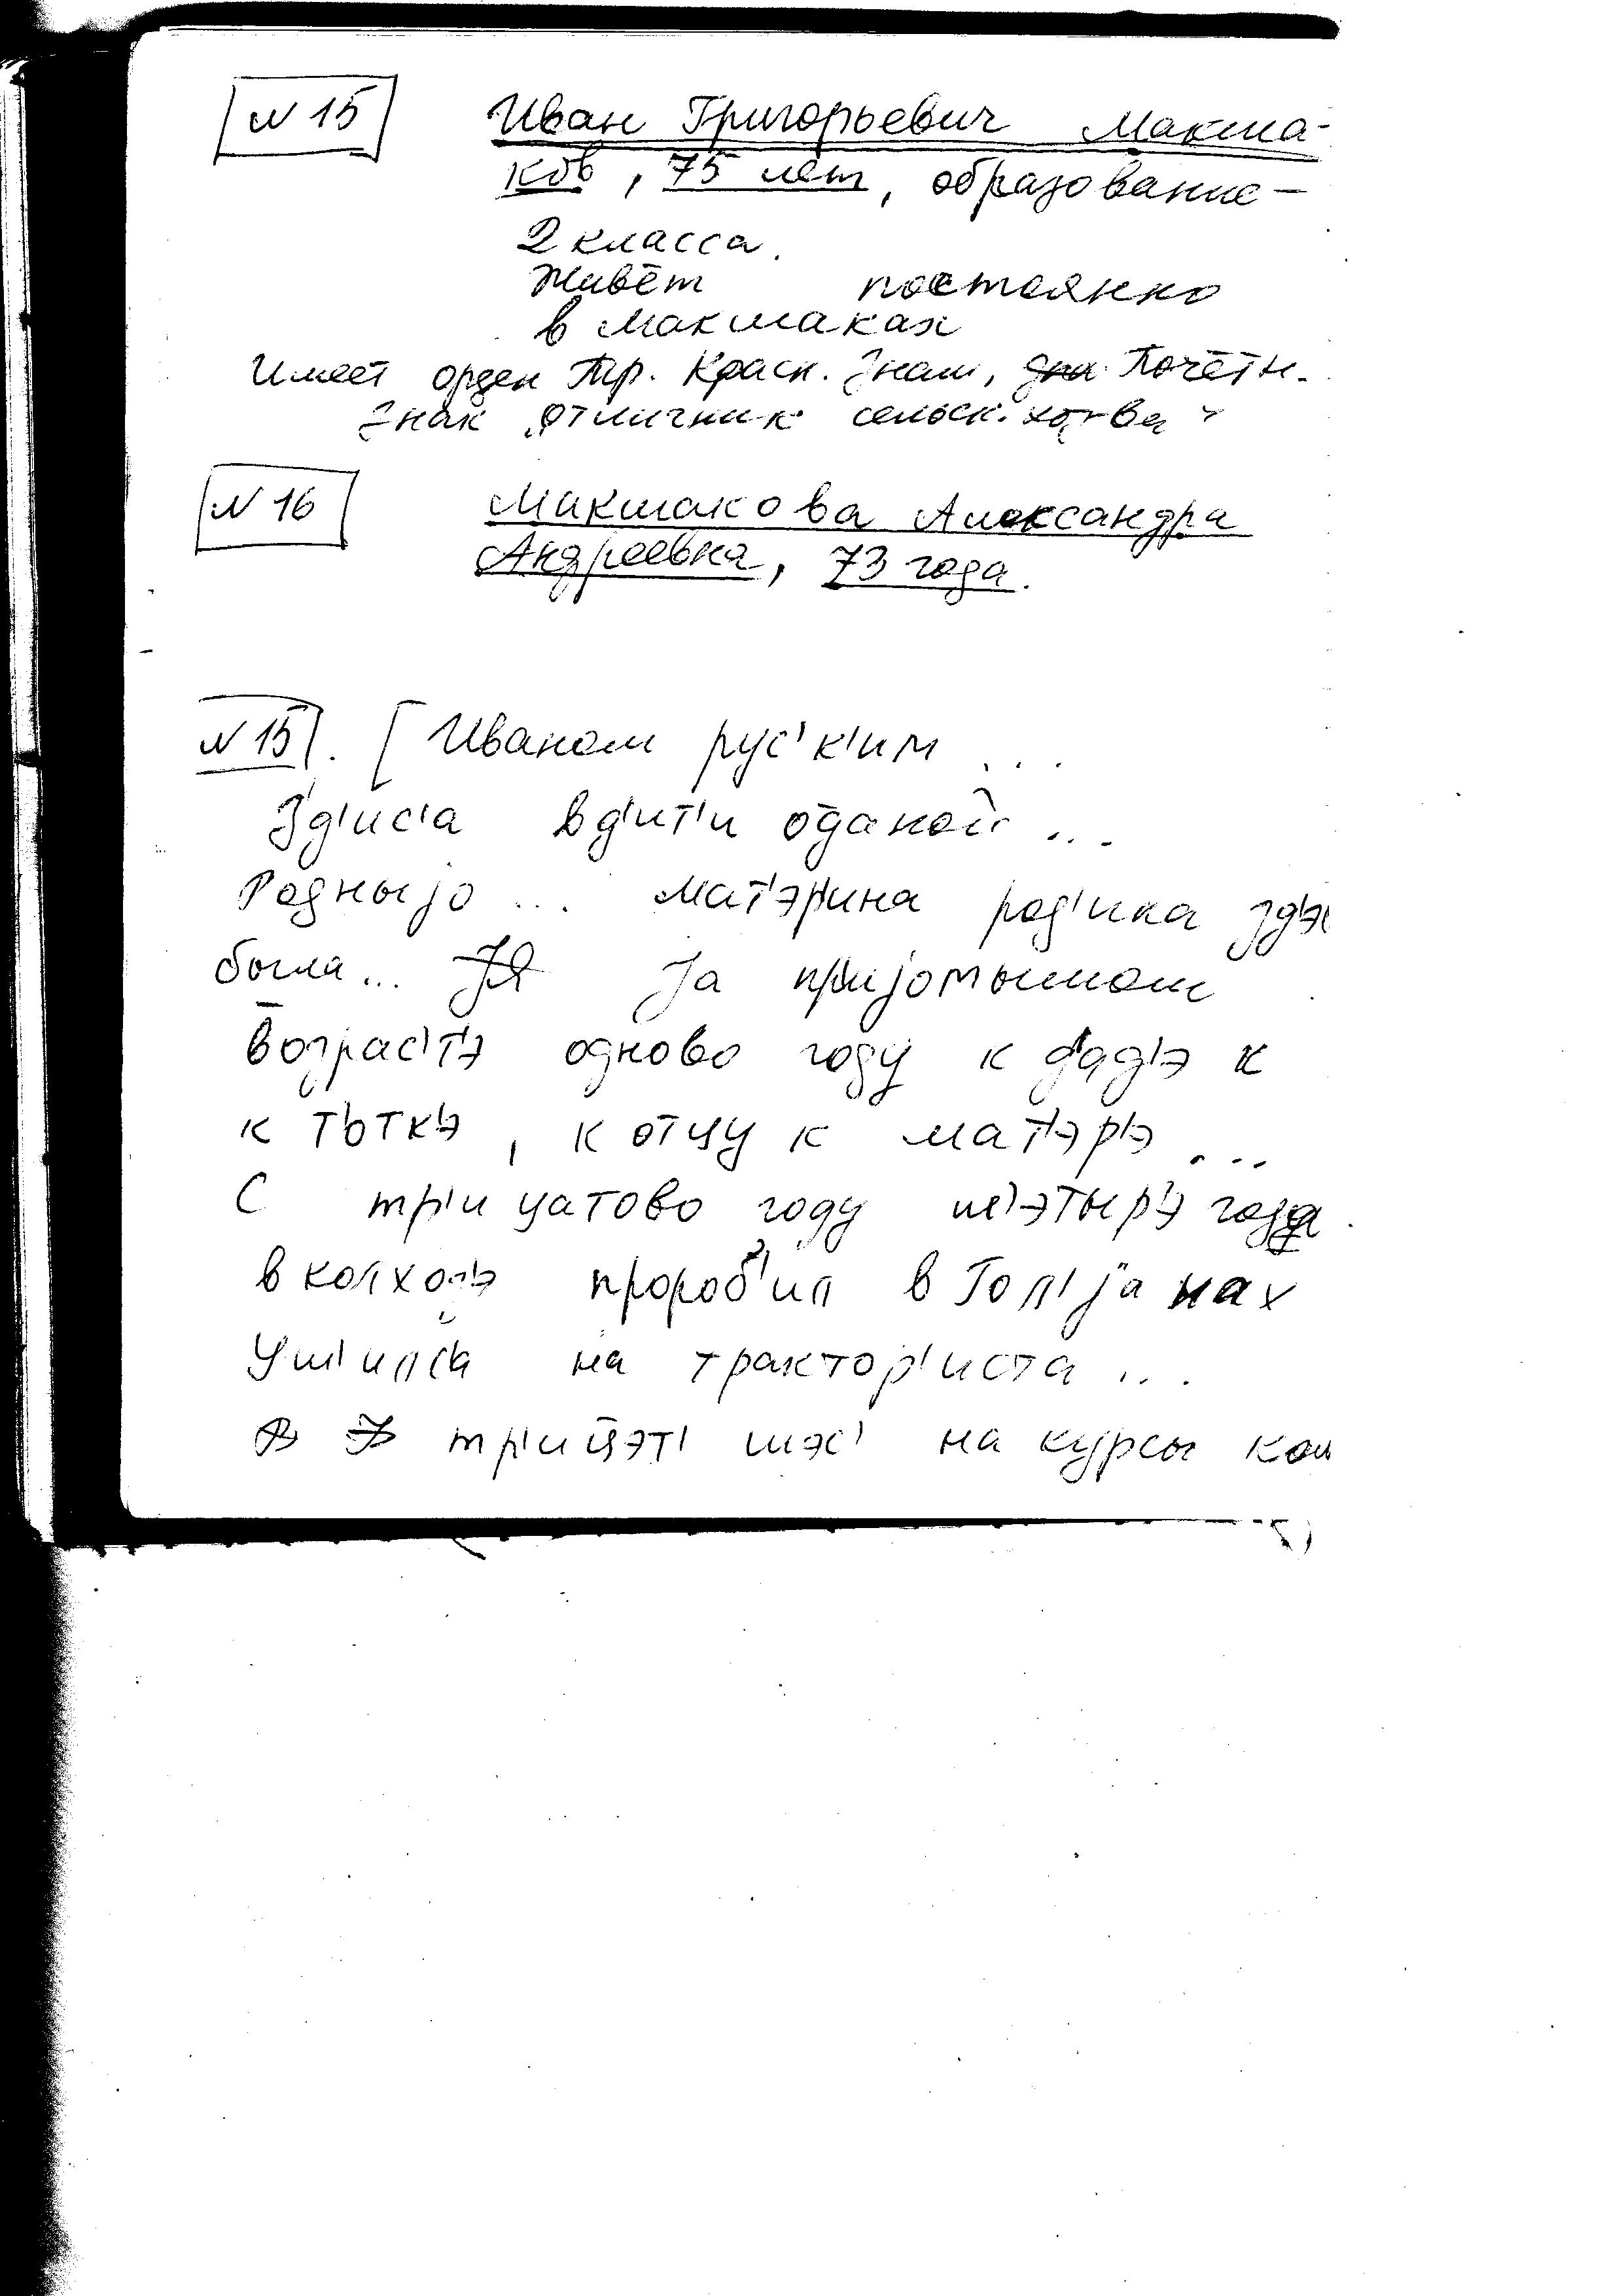 N 15 Иван Григорьевич Макша-
ков, 75 лет, образование –
2 класса.
Живёт постоянно
в Макшаках
Имеет орден Тр. Красн. Знам, Почётн.
Знак „отличник сельск. хоз-ва"
N 16 Макшакова Александра
Андреевна, 73 года.
N 15. [ Иваном рус'к'им ...
Зд'ис'а в д'ит'и оданой ...
Родныjо ... мат'эр'ина род'ина зд'э
была... Jа пр'иjомышом
возрас'т'э одново году к д'ад'э к
к т'отк'э, к отцу к мат'эр'э ...
С тр'ицатово году ш'этыр'э года
в колхоз'э пророб'ил в Гол'jанах
Уш'илс'а на трактор'иста ...
тр'ицэт' шэс' на курсы ком